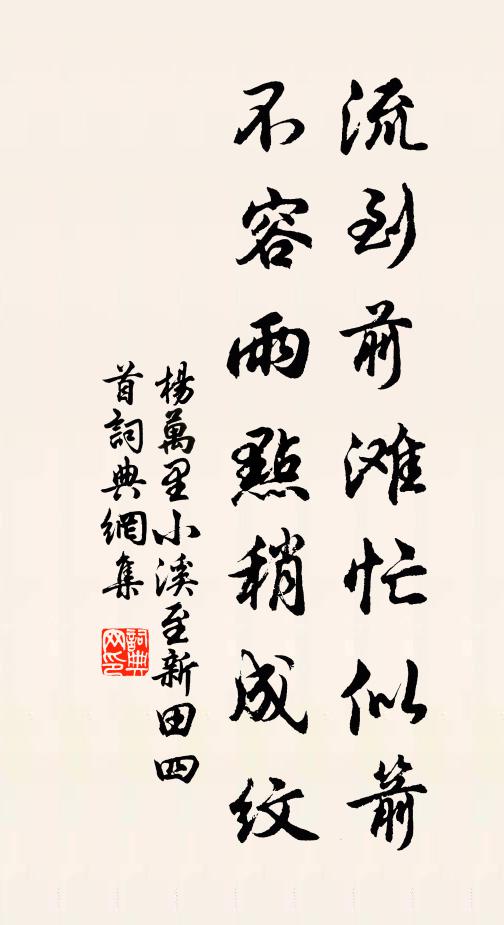 流到前滩忙似箭
不容雨點稍成紋
楊萬里小溪至新田四
首詞典網集
詞典
网印